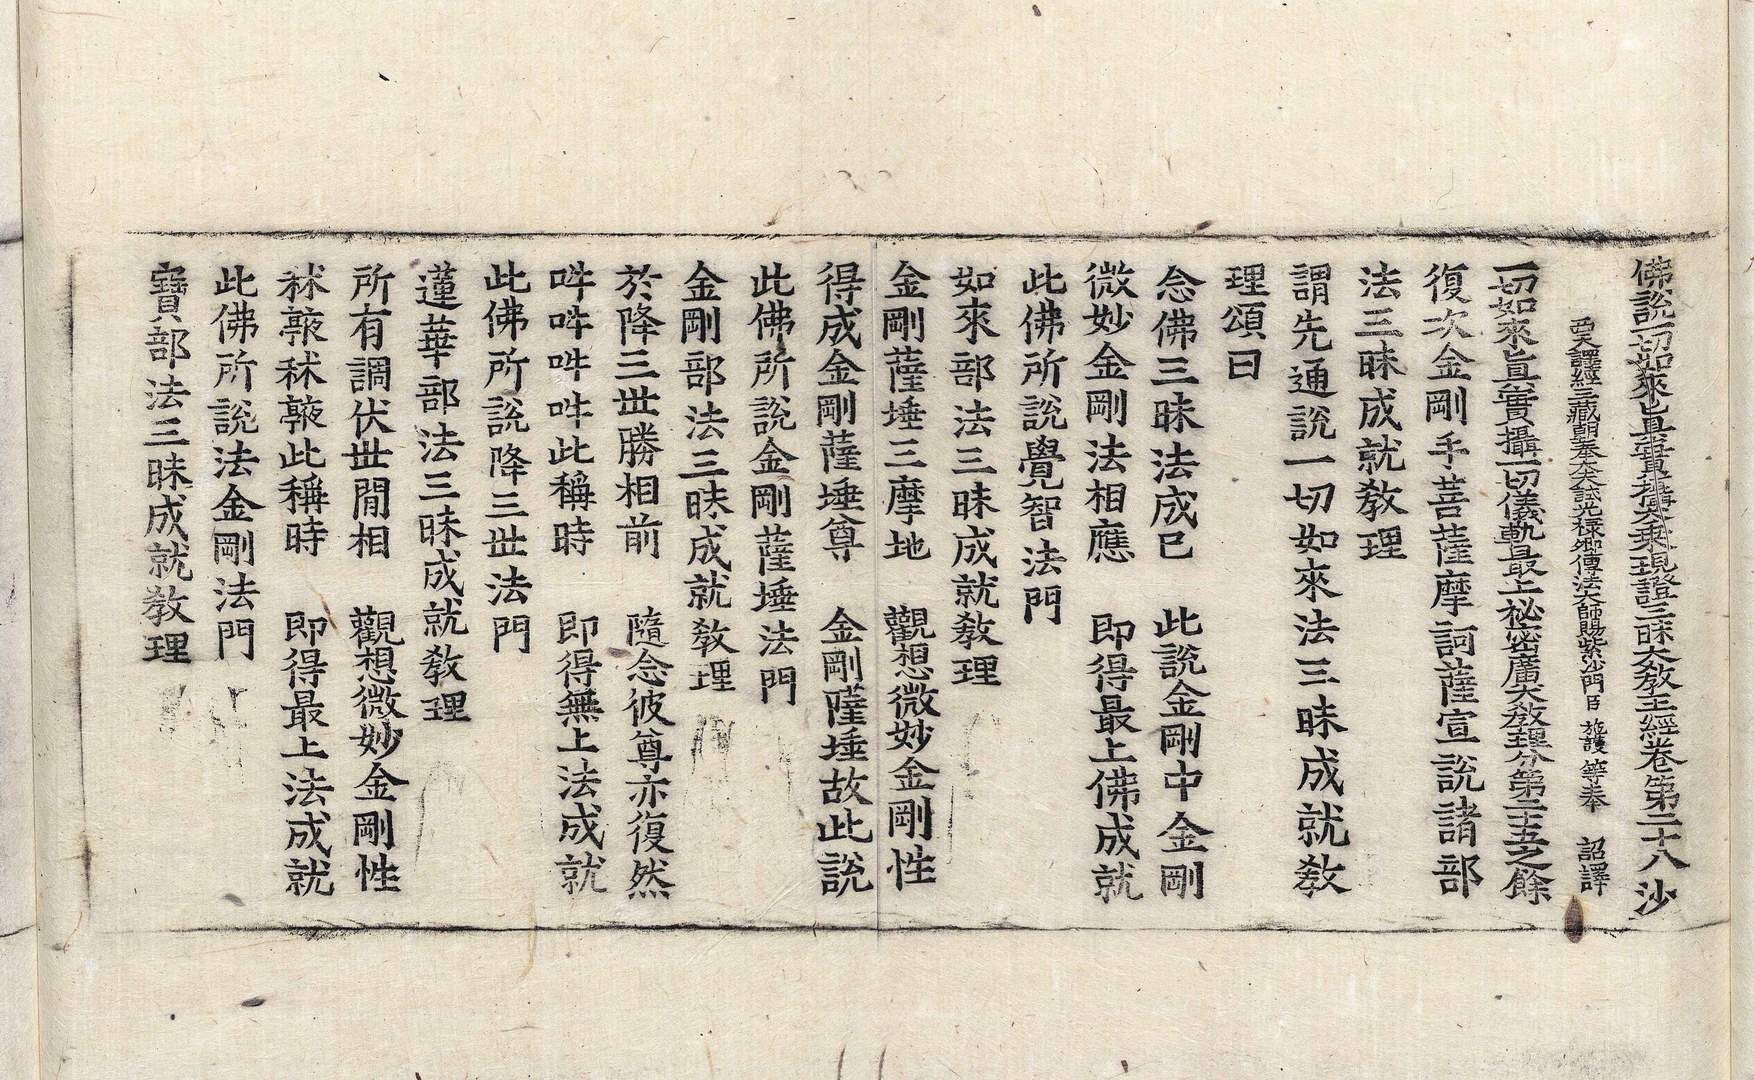 佛說一切如來眞實攝大乘現證三昧大敎王經卷第二十八 沙
西天譯經三藏朝奉大夫試光祿卿傳法大師賜紫沙門臣 施護 等奉 詔譯
一切如來眞實攝一切儀軌最上祕密廣大敎理分第二十五之餘
復次金剛手菩薩摩訶薩宣說諸部
法三昧成就敎理
謂先通說一切如來法三昧成就敎
理頌曰
念佛三昧法成已 此說金剛中金剛
微妙金剛法相應 即得最上佛成就
此佛所說覺智法門
如來部法三昧成就敎理
金剛薩埵三摩地 觀想微妙金剛性
得成金剛薩埵尊 金剛薩埵故此說
此佛所說金剛薩埵法門
金剛部法三昧成就敎理
於降三世勝相前 隨念彼尊亦復然
吽吽吽吽此稱時 即得無上法成就
此佛所說降三世法門
蓮華部法三昧成就敎理
所有調伏世閒相 觀想微妙金剛性
秫㰠秫㰠此稱時 即得最上法成就
此佛所說法金剛法門
寶部法三昧成就敎理